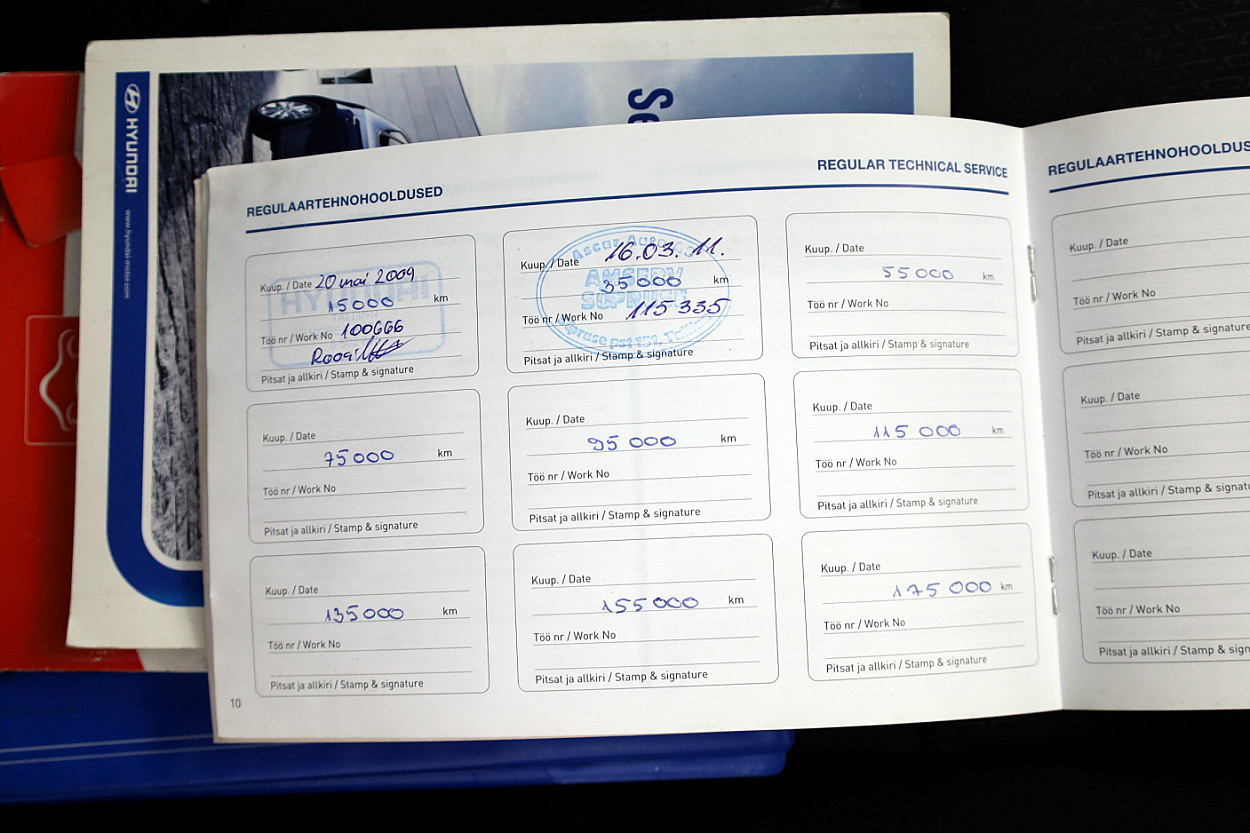 HYUNDAI
www.hyundai-motor.com
Se
REGULAARTEHNOHOOLDUSED
REGULAR TECHNICAL SERVICE
Kuup. / Date 20 mai 2009
15000 km
Töö nr / Work No 100666
Pitsat ja allkiri / Stamp & signature
HYUNDAI
TALLINN
Kuup. / Date 16.03.11.
35000 km
Töö nr / Work No 115335
Pitsat ja allkiri / Stamp & signature
Ascar Auto
AMSERV
Kuup. / Date
55000 km
Töö nr / Work No
Pitsat ja allkiri / Stamp & signature
Kuup. / Date
75000 km
Töö nr / Work No
Pitsat ja allkiri / Stamp & signature
Kuup. / Date
95000 km
Töö nr / Work No
Pitsat ja allkiri / Stamp & signature
Kuup. / Date
115000 km
Töö nr / Work No
Pitsat ja allkiri / Stamp & signature
Kuup. / Date
135000 km
Töö nr / Work No
Pitsat ja allkiri / Stamp & signature
Kuup. / Date
155000 km
Töö nr / Work No
Pitsat ja allkiri / Stamp & signature
Kuup. / Date
175000 km
Töö nr / Work No
Pitsat ja allkiri / Stamp & signature
10
REGULAARTEHNOHOOLDUS
Kuup. / Date
Töö nr / Work No
Pitsat ja allkiri / Stamp & signatu
Kuup. / Date
Töö nr / Work No
Pitsat ja allkiri / Stamp & signatu
Kuup. / Date
Töö nr / Work No
Pitsat ja allkiri / Stamp & signatu